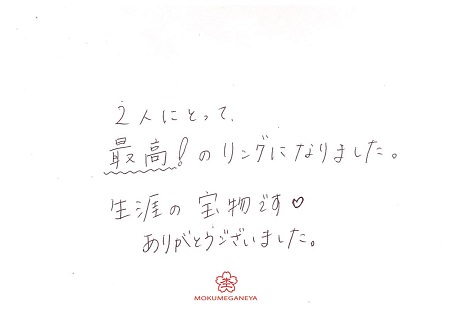 2人にとって、
最高!のリングになりました。
生涯の宝物です♡
ありがとうございました。
MOKUMEGANEYA